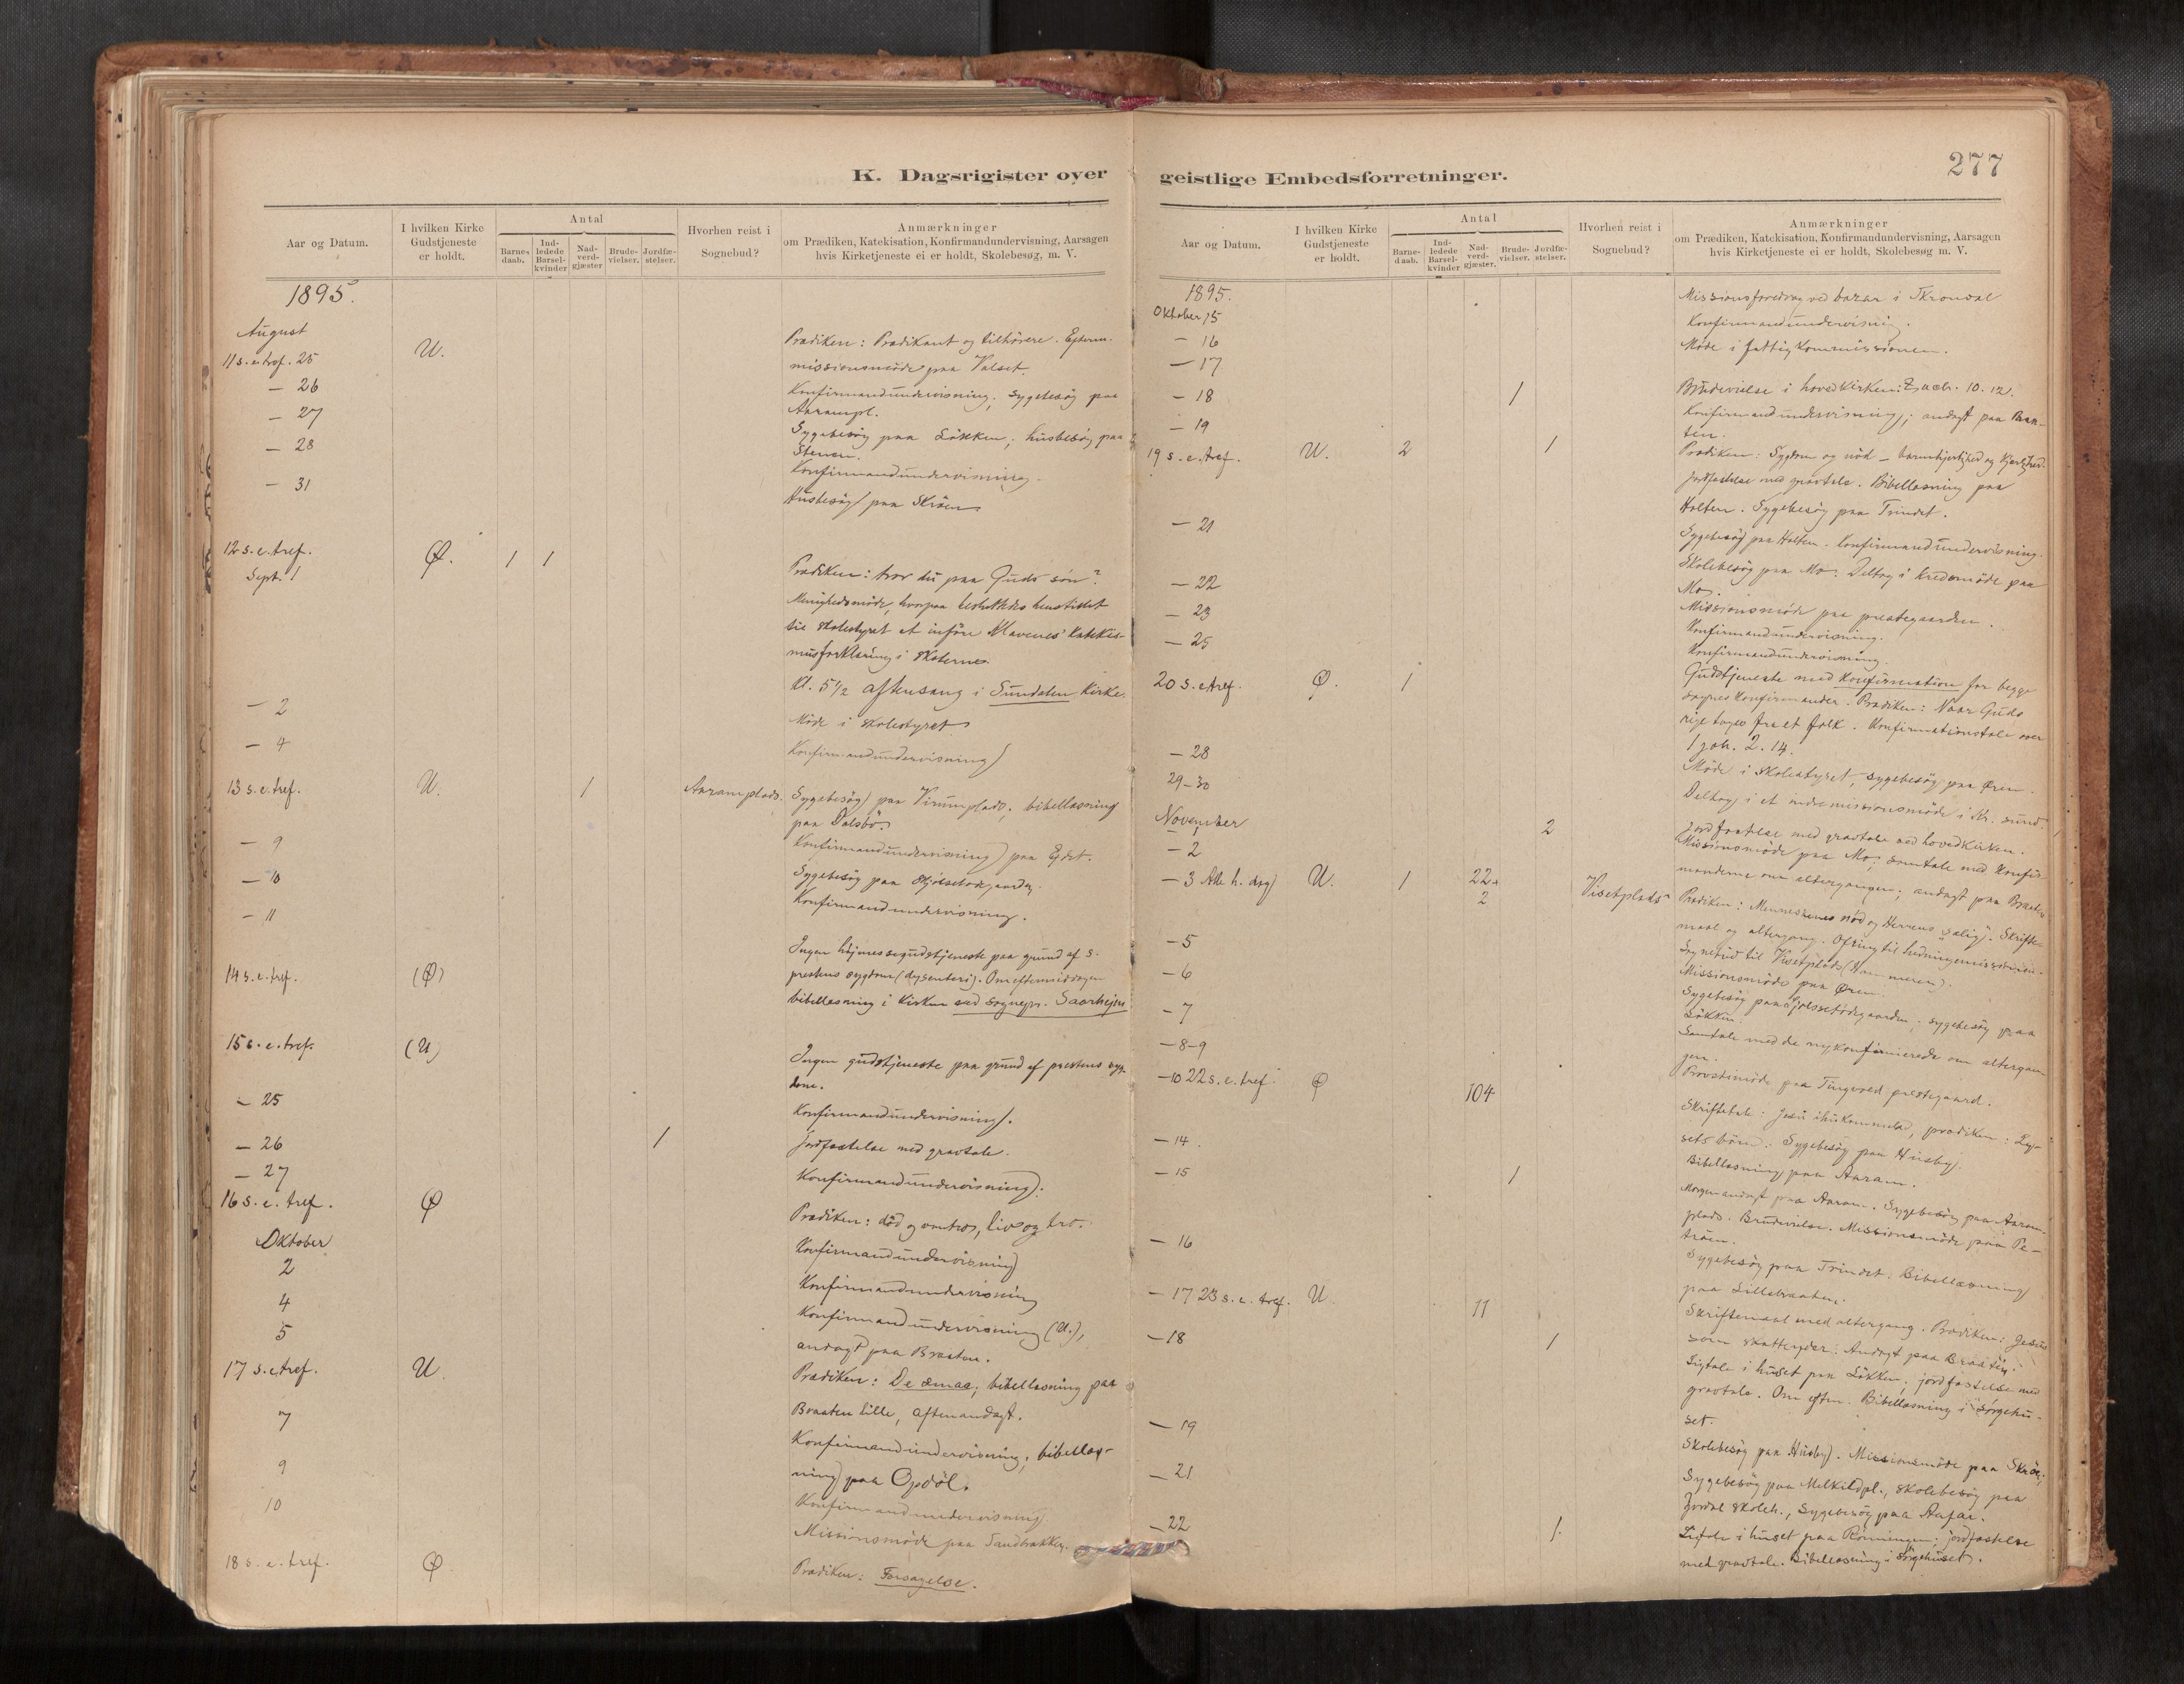 277
K. Dagsrigister over
Aar og Datum.
I hvilken Kirke
Gudstjeneste
er holdt.
Antal
Barne-
daab.
Ind-
ledede
Barsel-
kvinder
Nad-
verd-
gjæster
Brude-
vielser.
Jordfæ-
stelser.
Hvorhen reist i
Sognebud?
Anmærkninger
om Prædiken, Katekisation, Konfirmandundervisning, Aarsagen
hvis Kirketjeneste ei er holdt, Skolebesøg, m. V.
1895.
August
11 s. e. tref. 25 U. Prædiken: Prædikant og tilhörere. Efterm.
missionsmöde paa Valset.
— 26 Konfirmandundervisning; sygebesög paa
— 27 Aarampl.
Sygebesög paa Lökken; husbesög paa
— 28 Stenen.
Konfirmandundervisning.
— 31 Husbesög paa Skröen
12 s. e. tref. Ø. 1 1
Sept. 1 Prædiken: tror du paa Guds sön?
Menighedsmöde, hvorpaa besluttedes henstillet
til skolestyret at indföre Klavenes' katekis-
musforklaring i skolerne.
Kl. 5 1/2 aftensang i Sundalen kirke.
— 2 Möde i skolestyret
— 4 Konfirmandundervisning
13 s. e. tref. U. 1 Aaramplads. Sygebesög paa Virumplads; bibellæsning
paa Dalsbö.
— 9 Konfirmandundervisning paa Ejdet.
— 10 Sygebesög paa
— 11 Konfirmandundervisning.
Ingen höjmessegudstjeneste paa grund af s.
14 s. e. tref. (Ø) prestens sygdom (dysenteri). Om eftermiddagen
bibellæsning i kirken ved sognepr. Saarheim
15 s. e. tref. (U) Ingen gudstjeneste paa grund af prestens syg-
dom.
— 25 Konfirmandundervisning.
— 26 1 Jordfæstelse med gravtale.
— 27 Konfirmandundervisning.
16 s. e. tref. Ø Prædiken: död og vantro, liv og tro.
Oktober
2 Konfirmandundervisning
4 Konfirmandundervisning
5 Konfirmandundervisning (U.),
andagt paa Braaten.
17 s. e. tref. U. Prædiken: De smaa; bibellæsning paa
Braaten lille, aftenandagt.
7 Konfirmandundervisning; bibellæs-
9 ning paa Opdöl.
10 Konfirmandundervisning
Missionsmöde paa Sandbakken.
18 s. e. tref. Ø. Prædiken: Forsagelse.
geistlige Embedsforretninger.
Aar og Datum.
I hvilken Kirke
Gudstjeneste
er holdt.
Antal
Barne-
daab.
Ind-
ledede
Barsel-
kvinder
Nad-
verd-
gjæster.
Brude-
vielser.
Jordfæ-
stelser.
Hvorhen reist i
Sognebud?
Anmærkninger
om Prædiken, Katekisation, Konfirmandundervisning, Aarsagen
hvis Kirketjeneste ei er holdt, Skolebesøg m. V.
1895. Missionsforedrag ved bazar i
Oktober 15 Konfirmandundervisning.
— 16 Möde i fattigkommissionen.
— 17
— 18 1 Brudevielse i hovedkirken: Zach. 10. 12.
Konfirmandundervisning; andagt paa Braa-
— 19 ten.
19 s. e. tref. U. 2 1 Prædiken: Sygdom og nöd – barmhjertighed og kjerlighed.
Jordfæstelse med gravtale. Bibellæsning paa
Holten. Sygebesög paa Trindet.
— 21 Sygebesög paa Holten. Konfirmandundervisning.
Skolebesög paa Mo. Deltog i kredsmöde paa
— 22 Mo.
— 23 Missionsmöde paa prestegaarden.
Konfirmandundervisning.
— 25 Konfirmandundervisning.
20 s. e. tref. Ø. 1 Gudstjeneste med konfirmation for begge
sognes konfirmander. Prædiken: Naar Guds
rige tages fra et folk. Konfirmationstale over
1 Joh. 2. 14.
— 28 Möde i skolestyret, sygebesög paa Øren.
29–30 Deltog i et indremissionsmöde i Kr. sund.
November 2 Jordfæstelse med gravtale ved hovedkirken.
— 2 Missionsmöde paa Mo; samtale med konfir-
manderne om altergangen; andagt paa Braaten
— 3 Alle h. dag U. 1 22 2 Visetplads Prædiken: Menneskenes nöd og Herrens "salig". Skrifte-
maal og altergang. Ofring til hedningemissionen.
Sognebud til Visetplads (Hammeren).
— 5 Missionsmöde paa Øren.
— 6 Sygebesög paa sygebesög paa
— 7 Lökken.
— 8–9 Samtale med de nykonfirmerede om altergan-
gen.
Provstimöde paa Tingvold prestegaard.
— 10 22 s. e. tref. Ø 104 Skriftetale: Jesu ihukommelse, prædiken: Ly-
sets börn. Sygebesög paa Husby.
— 14. Bibellæsning paa Aaram.
— 15 1 Morgenandagt paa Aaram. Sygebesög paa Aaram-
plads. Brudevielse. Missionsmöde paa Pe-
tröen.
— 16 Sygebesög paa Trindet. Bibellæsning
paa Lillebraaten.
— 17 23 s. e. tref. U. 11 Skriftemaal med altergang. Prædiken: Jesus
som skatteyder. Andagt paa Braaten.
— 18 1 Ligtale i huset paa Lökken; jordfæstelse med
gravtale. Om eftm. Bibellæsning i sörgehu-
set.
— 19 Skolebesög paa Husby. Missionsmöde paa Skröe.
— 21 Sygebesög paa Melkildpl., skolebesög paa
Jordal skoleh., sygebesög paa
— 22 1. Ligtale i huset paa Rönningen, jordfæstelse
med gravtale. Bibellæsning i sörgehuset.